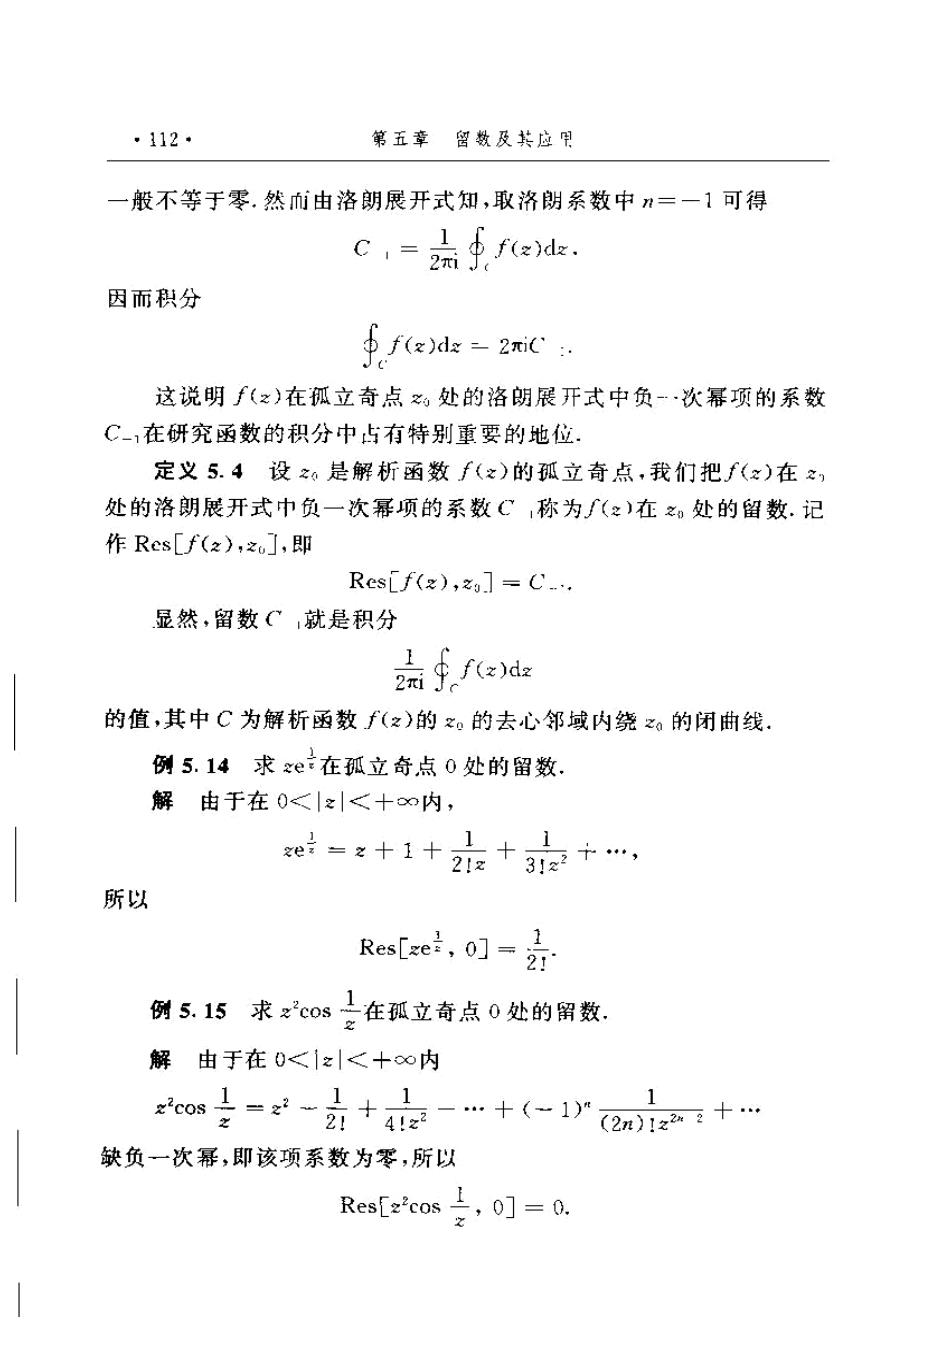 ·112· 第五章 留数及其应用
一般不等于零.然而由洛朗展开式知,取洛朗系数中 n=-1 可得
C₋₁ = \frac{1}{2πi} ∮_C f(z)dz.
因而积分
∮_C f(z)dz = 2πiC₋₁.
这说明 f(z)在孤立奇点 z₀ 处的洛朗展开式中负一次幂项的系数
C₋₁在研究函数的积分中占有特别重要的地位.
定义 5.4 设 z₀ 是解析函数 f(z)的孤立奇点,我们把f(z)在 z₀
处的洛朗展开式中负一次幂项的系数 C₋₁称为f(z)在 z₀ 处的留数.记
作 Res[f(z),z₀],即
Res[f(z),z₀] = C₋₁.
显然,留数 C₋₁就是积分
\frac{1}{2πi} ∮_C f(z)dz
的值,其中 C 为解析函数 f(z)的 z₀ 的去心邻域内绕 z₀ 的闭曲线.
例 5.14 求 ze^{\frac{1}{z}}在孤立奇点 0 处的留数.
解 由于在 0<|z|<+∞内,
ze^{\frac{1}{z}} = z + 1 + \frac{1}{2!z} + \frac{1}{3!z²} + …,
所以
Res[ze^{\frac{1}{z}}, 0] = \frac{1}{2!}.
例 5.15 求 z²cos \frac{1}{z}在孤立奇点 0 处的留数.
解 由于在 0<|z|<+∞内
z²cos \frac{1}{z} = z² - \frac{1}{2!} + \frac{1}{4!z²} - … + (-1)ⁿ \frac{1}{(2n)!z^{2n-2}} + …
缺负一次幂,即该项系数为零,所以
Res[z²cos \frac{1}{z}, 0] = 0.